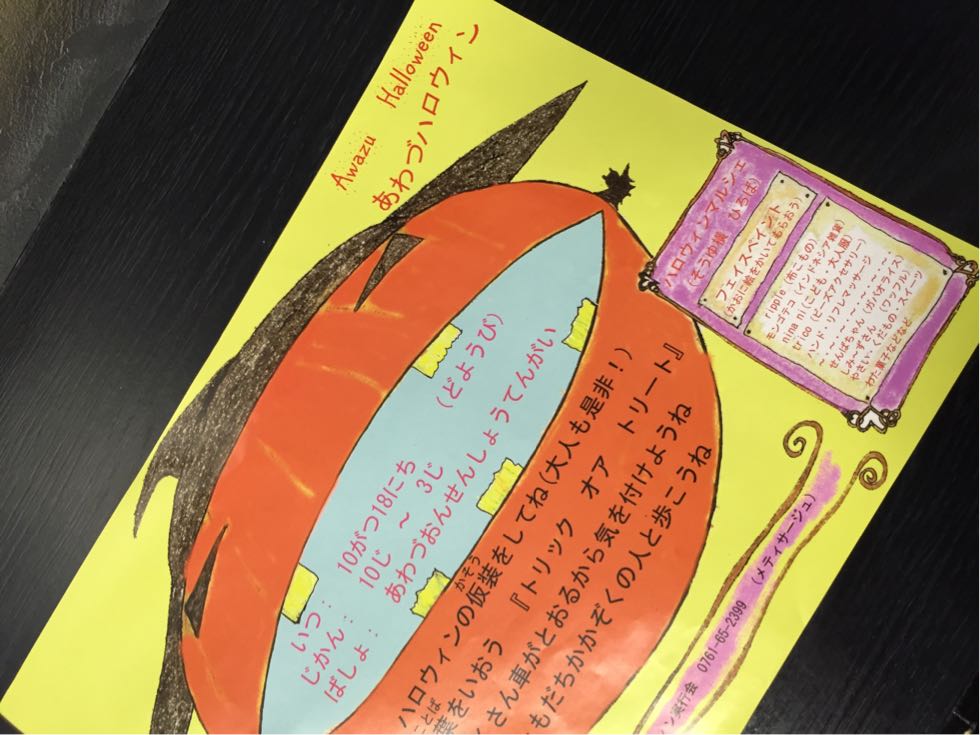 Awazu Halloween
あわづハロウィン
ハロウィンマルシェ
(そうゆ横 ひろば)
フェイスペイント
(かおに絵をかいてもらおう)
ripple (布こもの)
モンゴテコ (インドネシア雑貨)
nina ni (こども・大人服)
trico (ビーズアクセサリー)
ハンド・リフレマッサージ
～・～・～・～・～・～・
せんばちゃん (ガパオライス)
しみ～ずさん (ワッフル)
やさい・くだもの・スイーツ
わた菓子などなど
いつ： 10がつ18にち (どようび)
じかん： 10じ ～ 3じ
ばしょ： あわづおんせんしょうてんがい
ハロウィンの仮装をしてね(大人も是非！)
かそう
ことば
葉をいおう 『トリック オア トリート』
さん車がとおるから気を付けようね
もだちかかぞくの人と歩こうね
ン実行会 0761-65-2399 (メティサージュ)